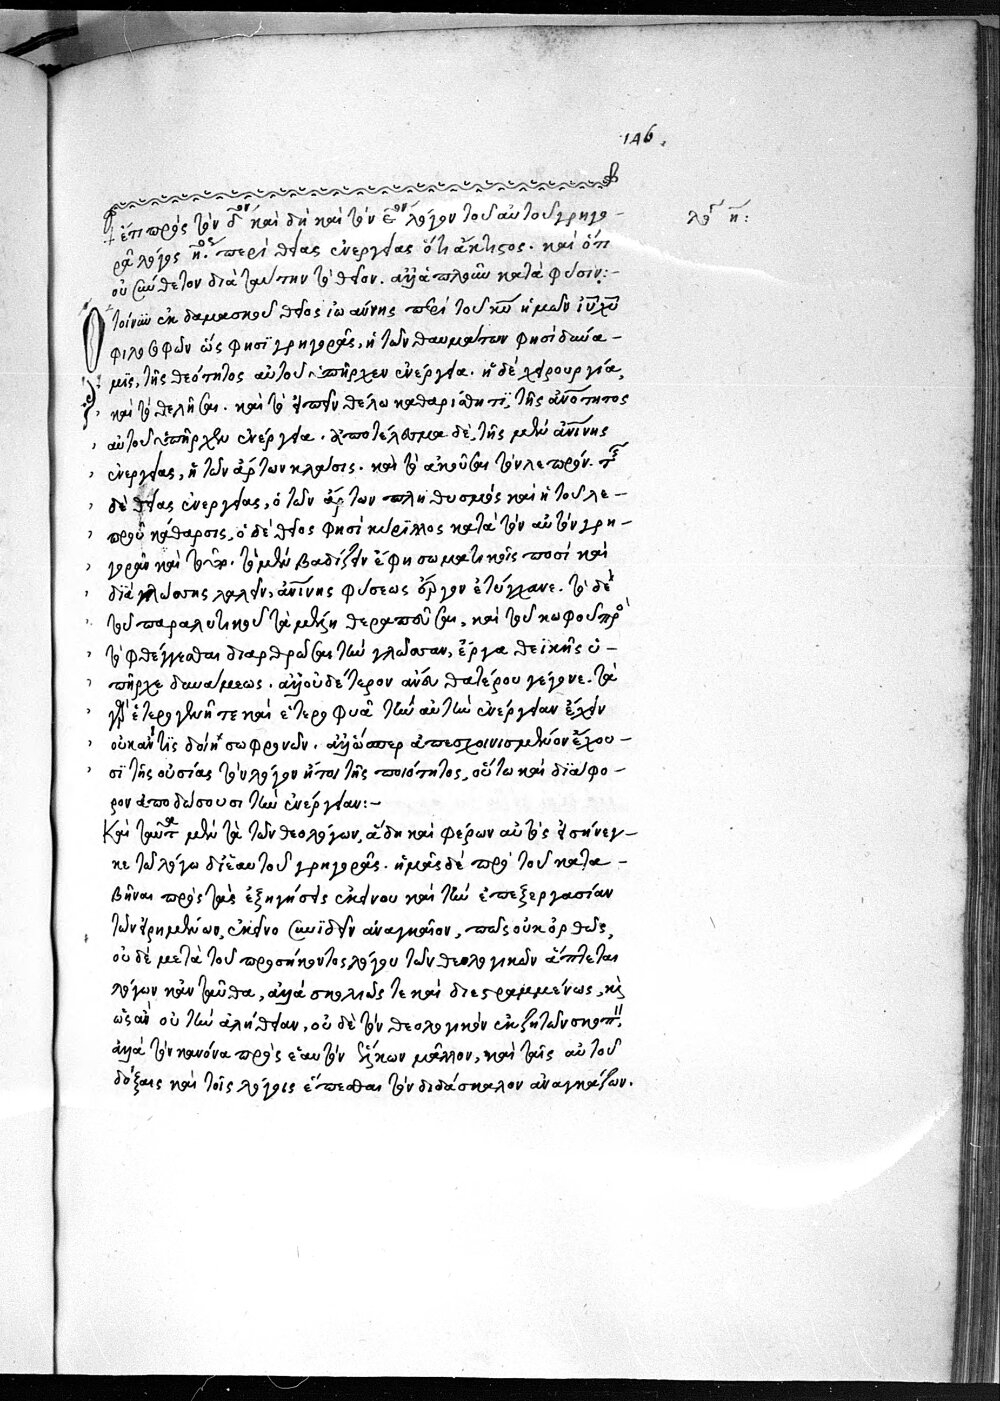 146.
ἔτι πρὸς τὸν δον καὶ δὴ καὶ τὸν εον λόγον τοῦ αὐτοῦ γρηγο-
ρᾶ λόγος ηος. περὶ θείας ἐνεργείας ὅτι ἄκτιστος. καὶ ὅτι
οὐ σύνθετον διὰ ταύτην τὸ θεῖον. ἀλλὰ ἁπλοῦν κατὰ φύσιν:-
λογ η:
Ὁ τοίνυν ἐκ δαμασκοῦ θεῖος ἰωάννης περὶ τοῦ κυ ἡμῶν ιυ χυ
φιλοσοφῶν ὥς φησι γρηγορᾶς, ἡ τῶν θαυμάτων φησὶ δύνα-
μϊς, τῆς θεότητος αὐτοῦ ὑπῆρχεν ἐνέργεια. ἡ δὲ χειρουργία,
καὶ τὸ θελῆσαι. καὶ τὸ εἰπεῖν θέλω καθαρίσθητϊ, τῆς ἀνότητος
αὐτοῦ ὑπῆρχεν ἐνέργεια. ἀποτέλεσμα δὲ, τῆς μὲν ἀνίνης
ἐνεργείας, ἡ τῶν ἄρτων κλάσις. καὶ τὸ ἀκοῦσαι τὸν λεπρόν. τῆς
δὲ θείας ἐνεργείας, ὁ τῶν ἄρτων πληθυσμὸς καὶ ἡ τοῦ λε-
προῦ κάθαρσις, ὁ δὲ θεῖος φησὶ κύρϊλλος κατὰ τὸν αὐτὸν γρη-
γορᾶν καὶ τὸ μὲν βαδίζειν ἔφη σωματικοῖς ποσὶ καὶ
διὰ γλώσσης λαλεῖν, ἀνίνης φύσεως ἔργον ἐτύγχανε. τὸ δὲ
τοῦ παραλυτικοῦ τὰ μέλη θεραπεῦσαι, καὶ τοῦ κωφοῦ πρὸς
τὸ φθέγγεσθαι διαρθρῶσαι τὴν γλῶσσαν, ἔργα θεϊκῆς ὑ-
πῆρχε δυνάμεως. ἀλλ' οὐδέτερον ἄνευ θατέρου γέγονε. τὰ
γὰρ ἑτερογενῆ τε καὶ ἑτεροφυᾶ τὴν αὐτὴν ἐνέργειαν ἔχειν
οὐκ ἄν τϊς δοίη σωφρονῶν. ἀλλ' ὥσπερ ἀπεσχοινισμένον ἔχου-
σϊ τῆς οὐσίας τὸν λόγον ἤτοι τῆς ποιότητος, οὕτω καὶ διάφο-
ρον ἀποδώσουσι τὴν ἐνέργειαν:-
Καὶ ταῦτα μὲν τὰ τῶν θεολόγων, ἃ δὴ καὶ φέρων αὐτὸς εἰσήνεγ-
κε τῶ λόγω δι' ἑαυτοῦ γρηγορᾶς. ἡμᾶς δὲ πρὸ τοῦ κατα-
βῆναι πρὸς τὰς ἐξηγήσεις ἐκείνου καὶ τὴν ἐπεξεργασίαν
τῶν εἰρημένων, ἐκεῖνο συνϊδεῖν ἀναγκαῖον, πῶς οὐκ ὀρθῶς,
οὐδὲ μετὰ τοῦ προσήκοντος λόγου τῶν θεολογικῶν ἅπτεται
λόγων κἀνταῦθα, ἀλλὰ σκολιῶς τε καὶ διεστραμμένως, καὶ
ὡς ἂν οὐ τὴν ἀλήθειαν, οὐδὲ τὸν θεολογικὸν ἐκζητῶν σκοπόν,
ἀλλὰ τὸν κανόνα πρὸς ἑαυτὸν ἕλκων μᾶλλον, καὶ ταῖς αὐτοῦ
δόξαις καὶ τοῖς λόγοις ἕπεσθαι τὸν διδάσκαλον ἀναγκάζων.